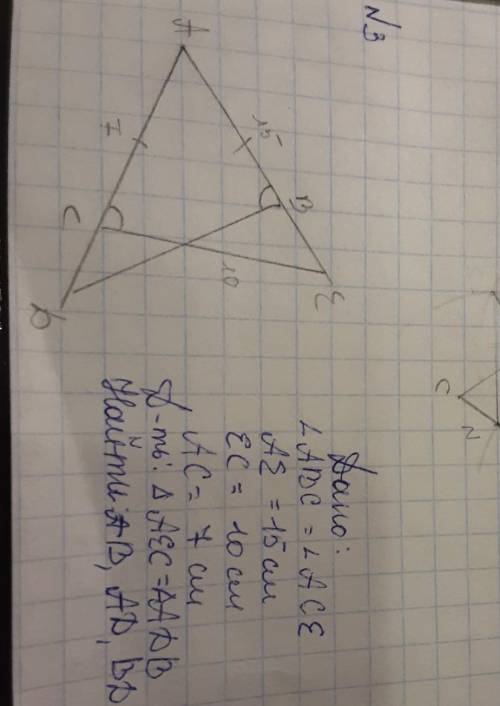 N3
A
15
7
B
C
10
E
D
C
N
Дано:
∠ABC = ∠ACE
AE = 15 см
EC = 10 см
AC = 7 см
Д-ть: ΔAEC = ΔADB
Найти: AB, AD, BD